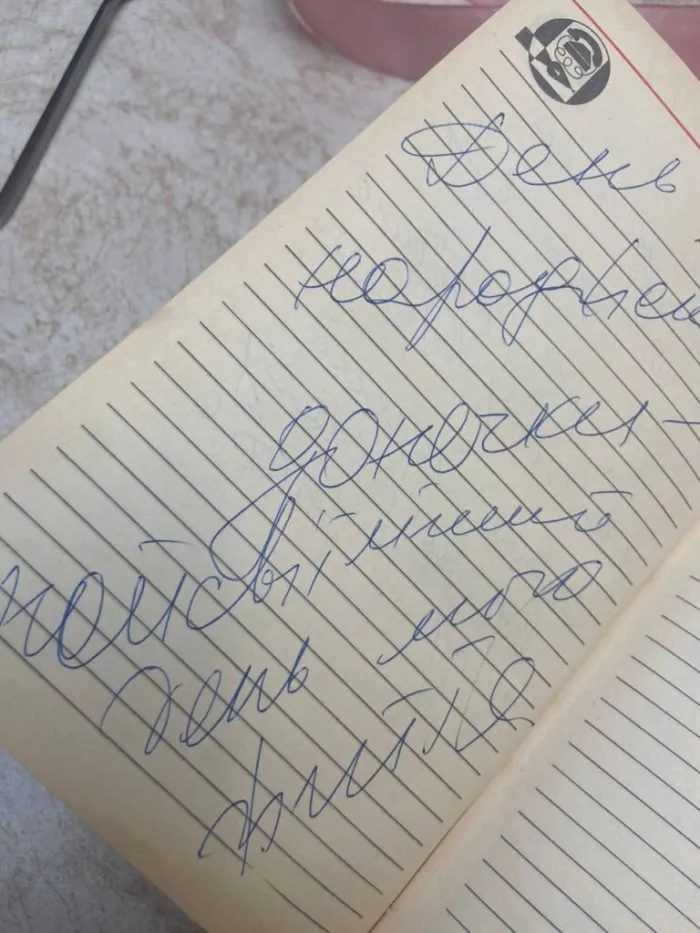 День
народжен
донечки -
найсвітліший
день мого
життя